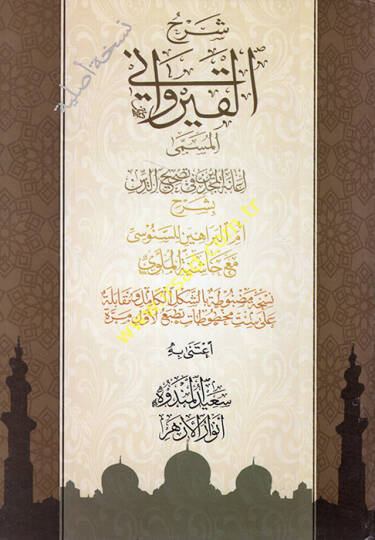 شرح
القيرواني
المسمى
إعانة المجدين في تصحيح الدين
بشرح
أم البراهين للسنوسي
مع حاشية الملوي
نسخة مضبوطة بالشكل الكامل ومقابلة
على ست مخطوطات تطبع لأول مرة
اعتنى به
سعيد المندوه
أنوار الأزهر
نسخة أصلية